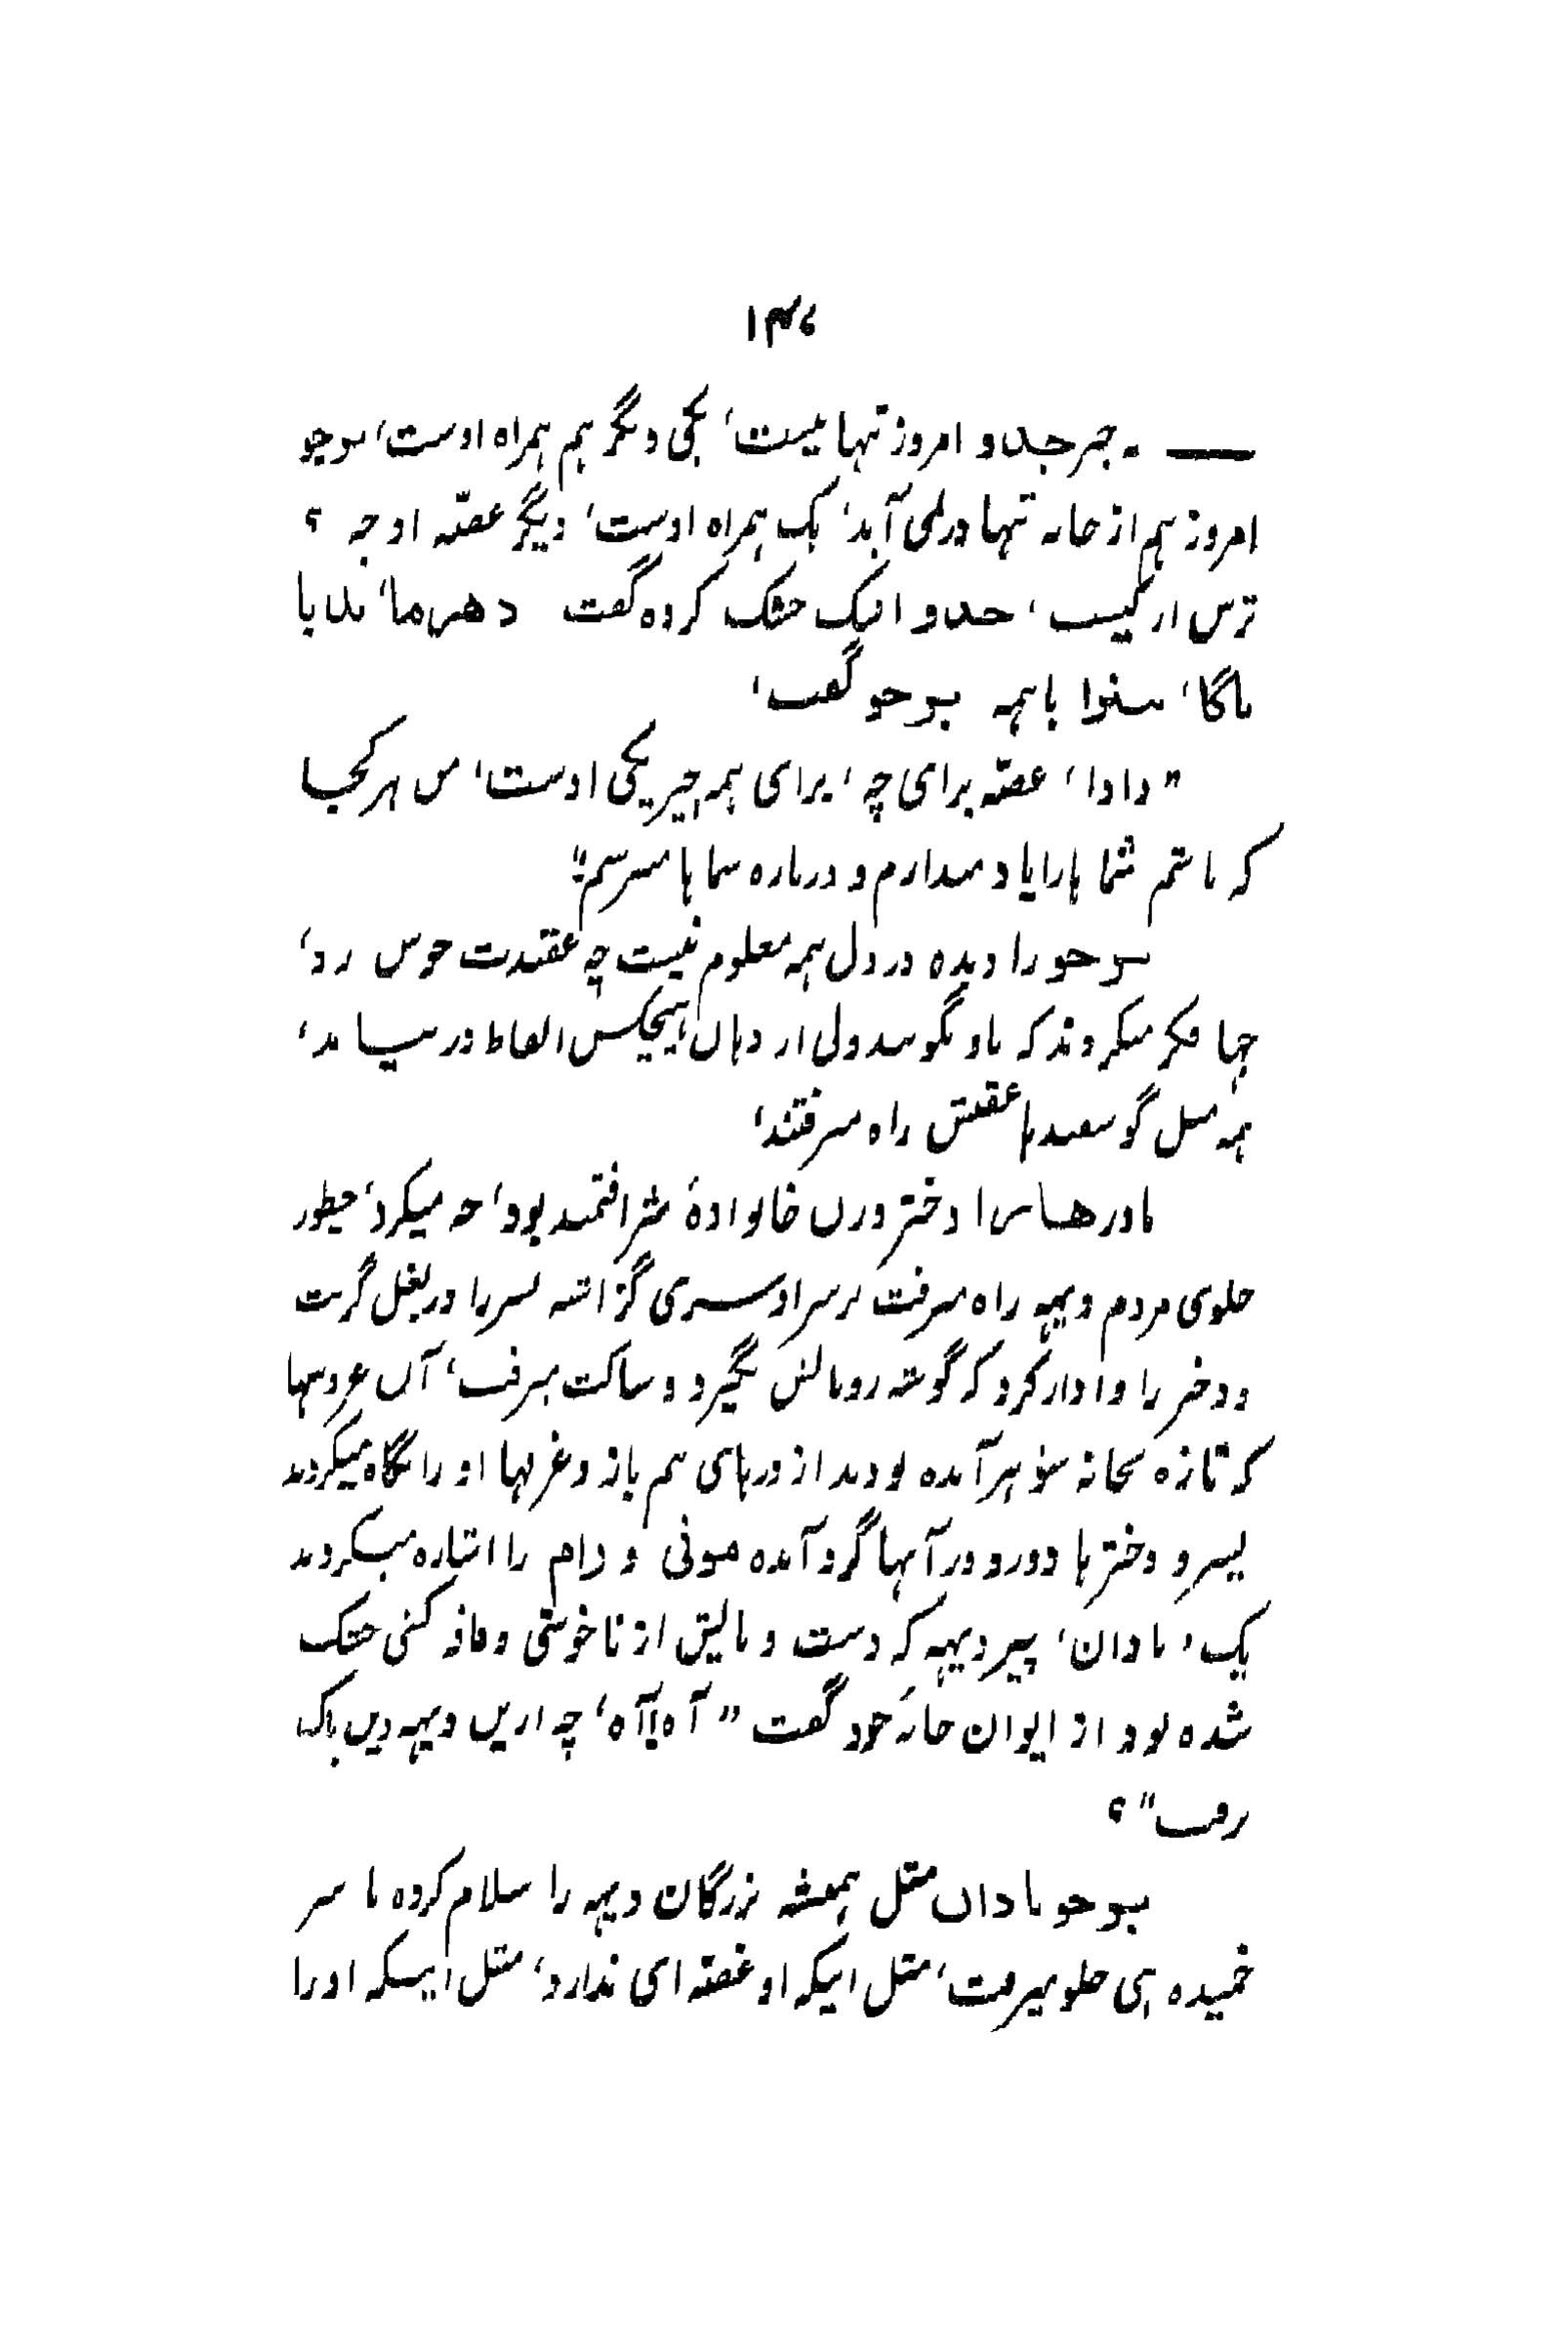 ۱۴۶
— ۔ جبرجدو امروز تنها نیست، یکی دیگر هم همراه اوست، برجو
امروز هم از خانه تنها درنمی آید، یک همراه اوست، دیگر غصّه او چه ؟
ترس از کیست، جدو اشک خشک کرده گفت دهرما، بابا
ماگا، با همه برجو گفت،
”دادا، غصّه برای چه، برای همه چیز یکی اوست، من هر کجا
که باشم شما ها را یاد میدارم و درباره شما ها میپرسم“
برجو را دیده در دل همه معلوم نیست چه عقیدت جوش زد،
چها فکر میکردند که باو بگویند ولی از دهان هیچکس الفاظ در نمیامد،
همه مثل گوسفندها عقبش راه میرفتند،
مادر دختر درن خانوادهٔ شرافتمند بود، چه میکرد، چطور
جلوی مردم دیهه راه میرفت بر سر او سری گزاشته پسر را در بغل گرفت
و دختر را وادار کرد که گوشه رومالش بگیرد و ساکت برفت، آن عروسها
که تازه بخانه شوهر آمده بودند از درهای نیم باز و غرفها او را نگاه میکردند
پسر و دختر ها دور و ور آنها گرد آمده مونی و رام را اشاره میکردند
یک، نادان، پیر دیهه که دست و پالیش از ناخوشی و فاقه کشی خشک
شده بود از ایوان خانهٔ خود گفت ”آه! آه، چه ازین دیهه دین پاک
رفت“ ؟
برجو نادان مثل همیشه بزرگان دیهه را سلام کرده با سر
خمیده هی جلو میرفت، مثل اینکه او غصّه ای ندارد، مثل اینکه او را